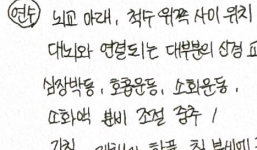 연수 뇌교 아래, 척수 위쪽 사이 위치
대뇌와 연결되는 대부분의 신경 교
심장박동, 호흡운동, 소화운동,
소화액 분비 조절 중추 /